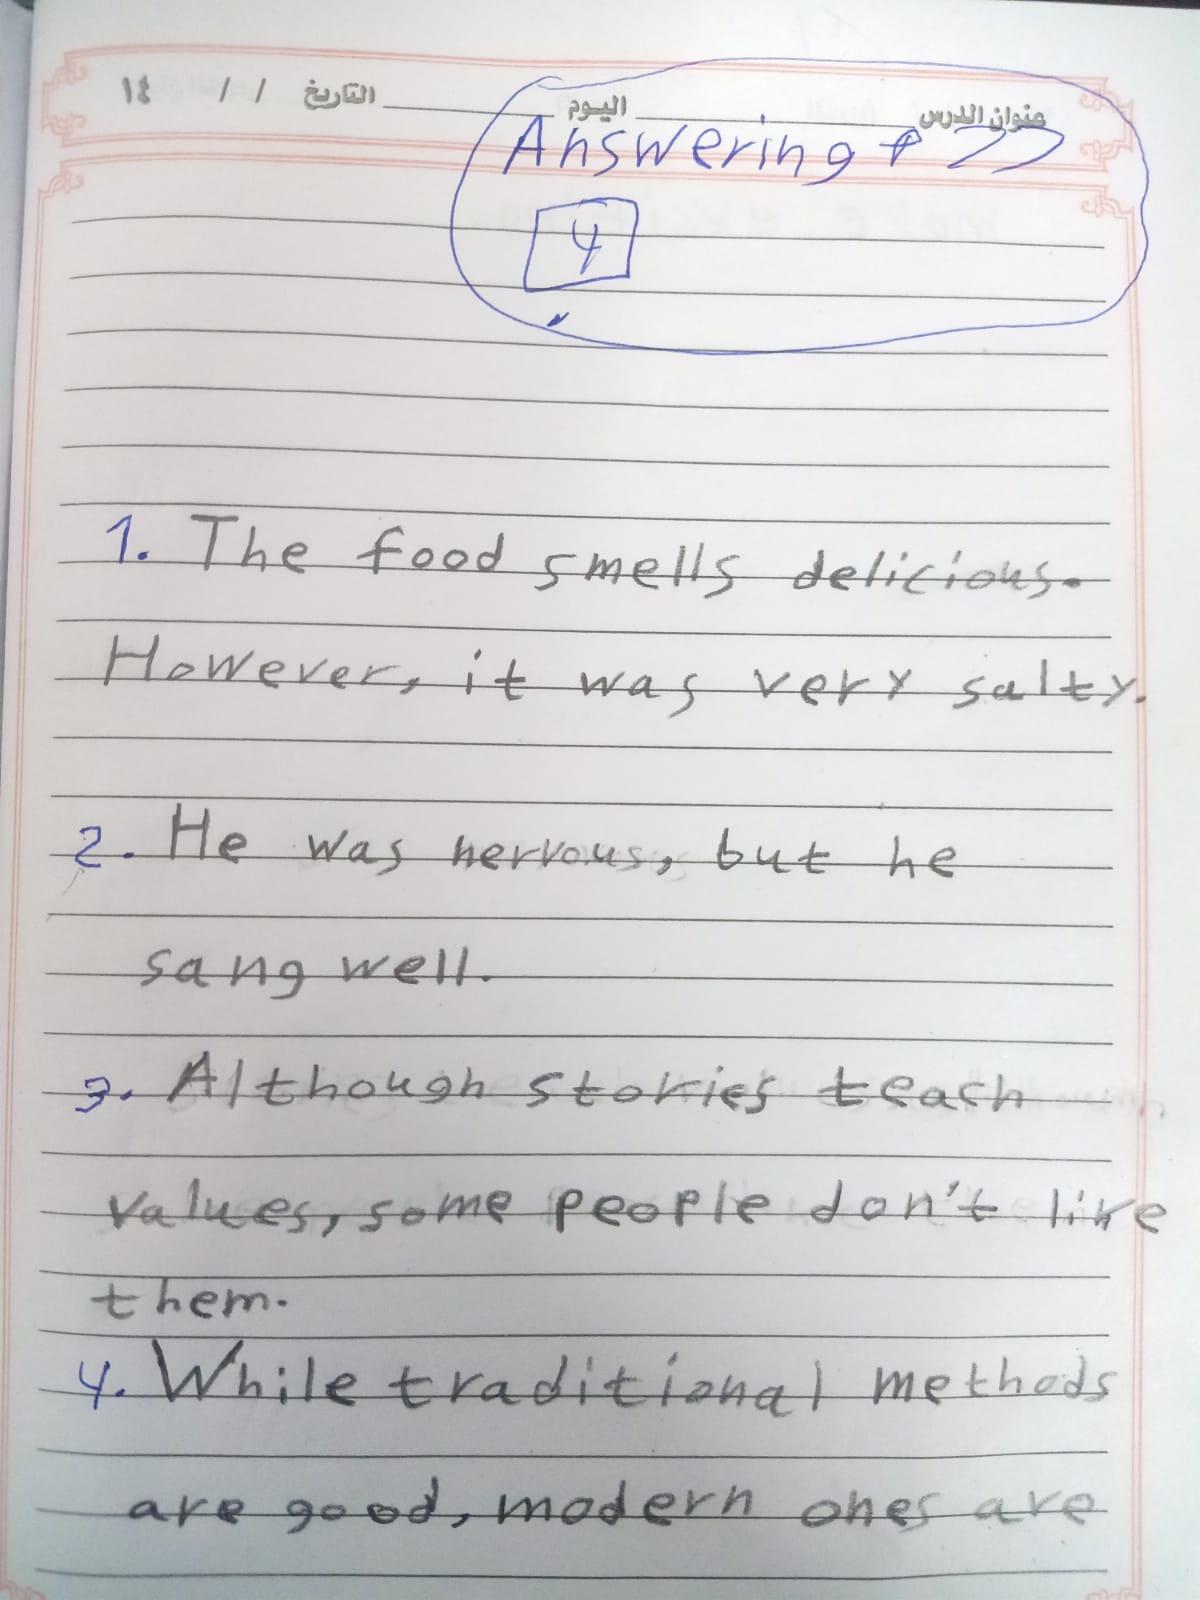 عنوان الدرس اليوم التاريخ / / ١٤
Answering P 77
4
1. The food smells delicious.
However, it was very salty.
2. He was nervous, but he
sang well.
3. Although stories teach
values, some people don't like
them.
4. While traditional methods
are good, modern ones are